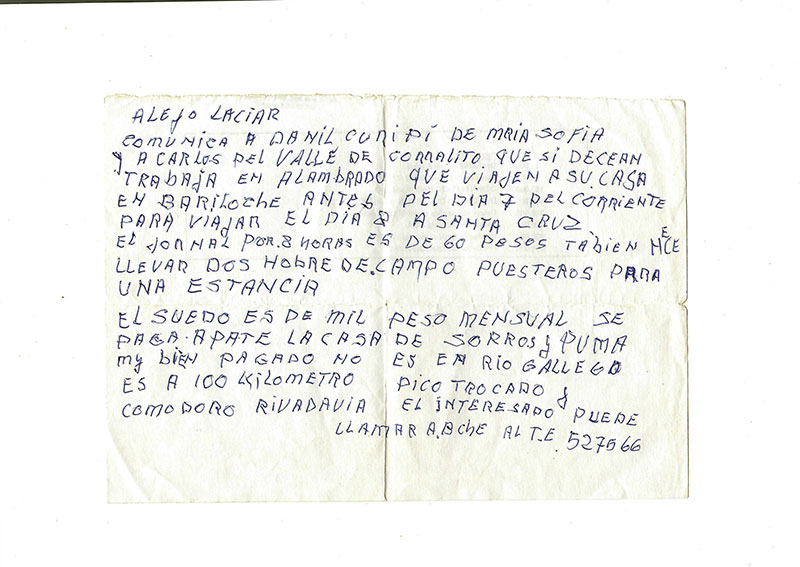 ALEJO LACIAR
COMUNICA A DANIL CURIPI DE MRIA SOFIA
Y A CARLOS DEL VALLE DE CORRALITO QUE SI DECEAN
TRABAJA EN ALAMBRADO QUE VIAJEN A SU CASA
EN BARILOCHE ANTES DEL DIA 7 DEL CORRIENTE
PARA VIAJAR EL DIA 8 A SANTA CRUZ.
EL JORNAL POR 8 HORAS ES DE 60 PESOS TABIEN
LLEVAR DOS HOBRE DE CAMPO PUESTEROS PARA
UNA ESTANCIA
EL SUEDO ES DE MIL PESO MENSUAL SE
PAGA APATE LA CASA DE SORROS y PUMA
My BIEN PAGADO NO ES EN RIO GALLEGO
ES A 100 KILOMETRO PICO TROCADO y
COMODORO RIVADAVIA EL INTERESADO PUEDE
LLAMAR A Bche AL T.E. 527566